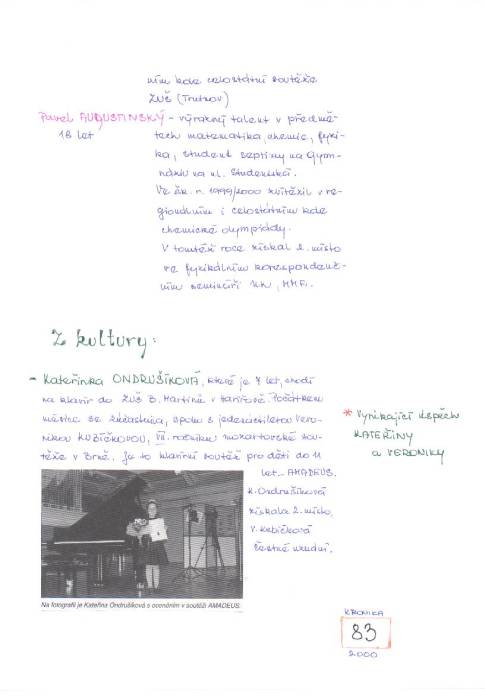 ním kole celostátní soutěže
ZUŠ (Trutnov)
Pavel AUGUSTINSKÝ - výrazný talent v předmě-
18 let
tech matematika, chemie, fyzi-
ka, student septimy na Gym-
náziu na ul. Studentská.
Ve šk. r. 1999/2000 zvítězil v re-
gionálním i celostátním kole
chemické olympiády.
V tomtéž roce získal 2. místo
ve fyzikálním korespondenč-
ním semináři
Z kultury:
- Kateřinka ONDRUŠÍKOVÁ, které je 7 let, chodí
na klavír do ZUŠ B. Martinů v Havířově. Počátkem
měsíce se zúčastnila, spolu s jedenáctiletou Vero-
nikou KUBÍČKOVOU, VII. ročníku mozartovské sou-
těže v Brně. Je to klavírní soutěž pro děti do 11
let - AMADEUS.
K. Ondrušíková
získala 2. místo,
V. Kubíčková
čestné uznání.
* Vynikající úspěch
KATEŘINY
a VERONIKY
Na fotografii je Kateřina Ondrušíková s oceněním v soutěži AMADEUS.
KRONIKA
83
2000